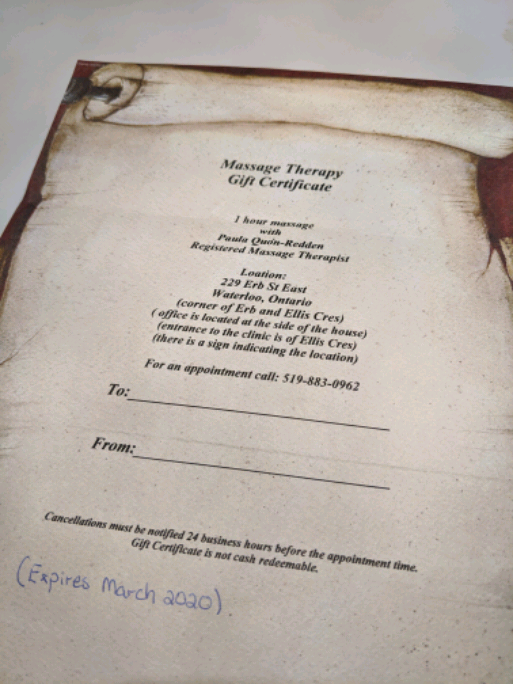 Massage Therapy
Gift Certificate
1 hour massage
with
Paula Quon-Redden
Registered Massage Therapist
Loation:
229 Erb St East
Waterloo, Ontario
(corner of Erb and Ellis Cres)
( office is located at the side of the house)
(entrance to the clinic is of Ellis Cres)
(there is a sign indicating the location)
For an appointment call: 519-883-0962
To:
From:
Cancellations must be notified 24 business hours before the appointment time.
Gift Certificate is not cash redeemable.
(Expires March 2020)